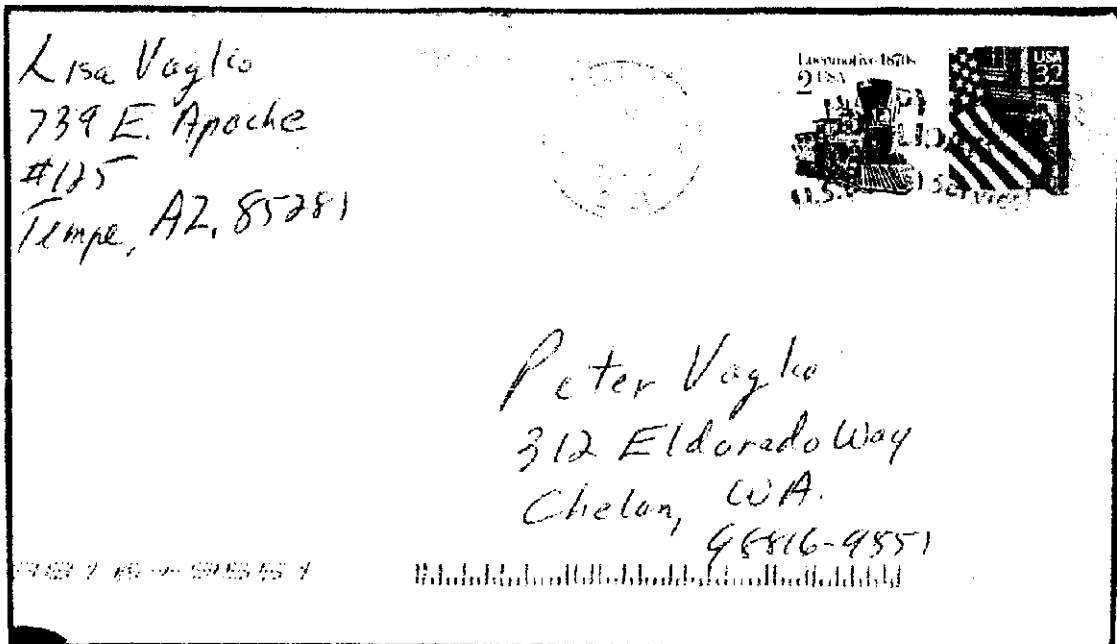 Lisa Vaglio
739 E. Apache
#125
Tempe, AZ, 85281
Locomotive 1870s
2 USA
USA
32
Peter Vaglio
312 Eldorado Way
Chelan, WA.
98816-9551